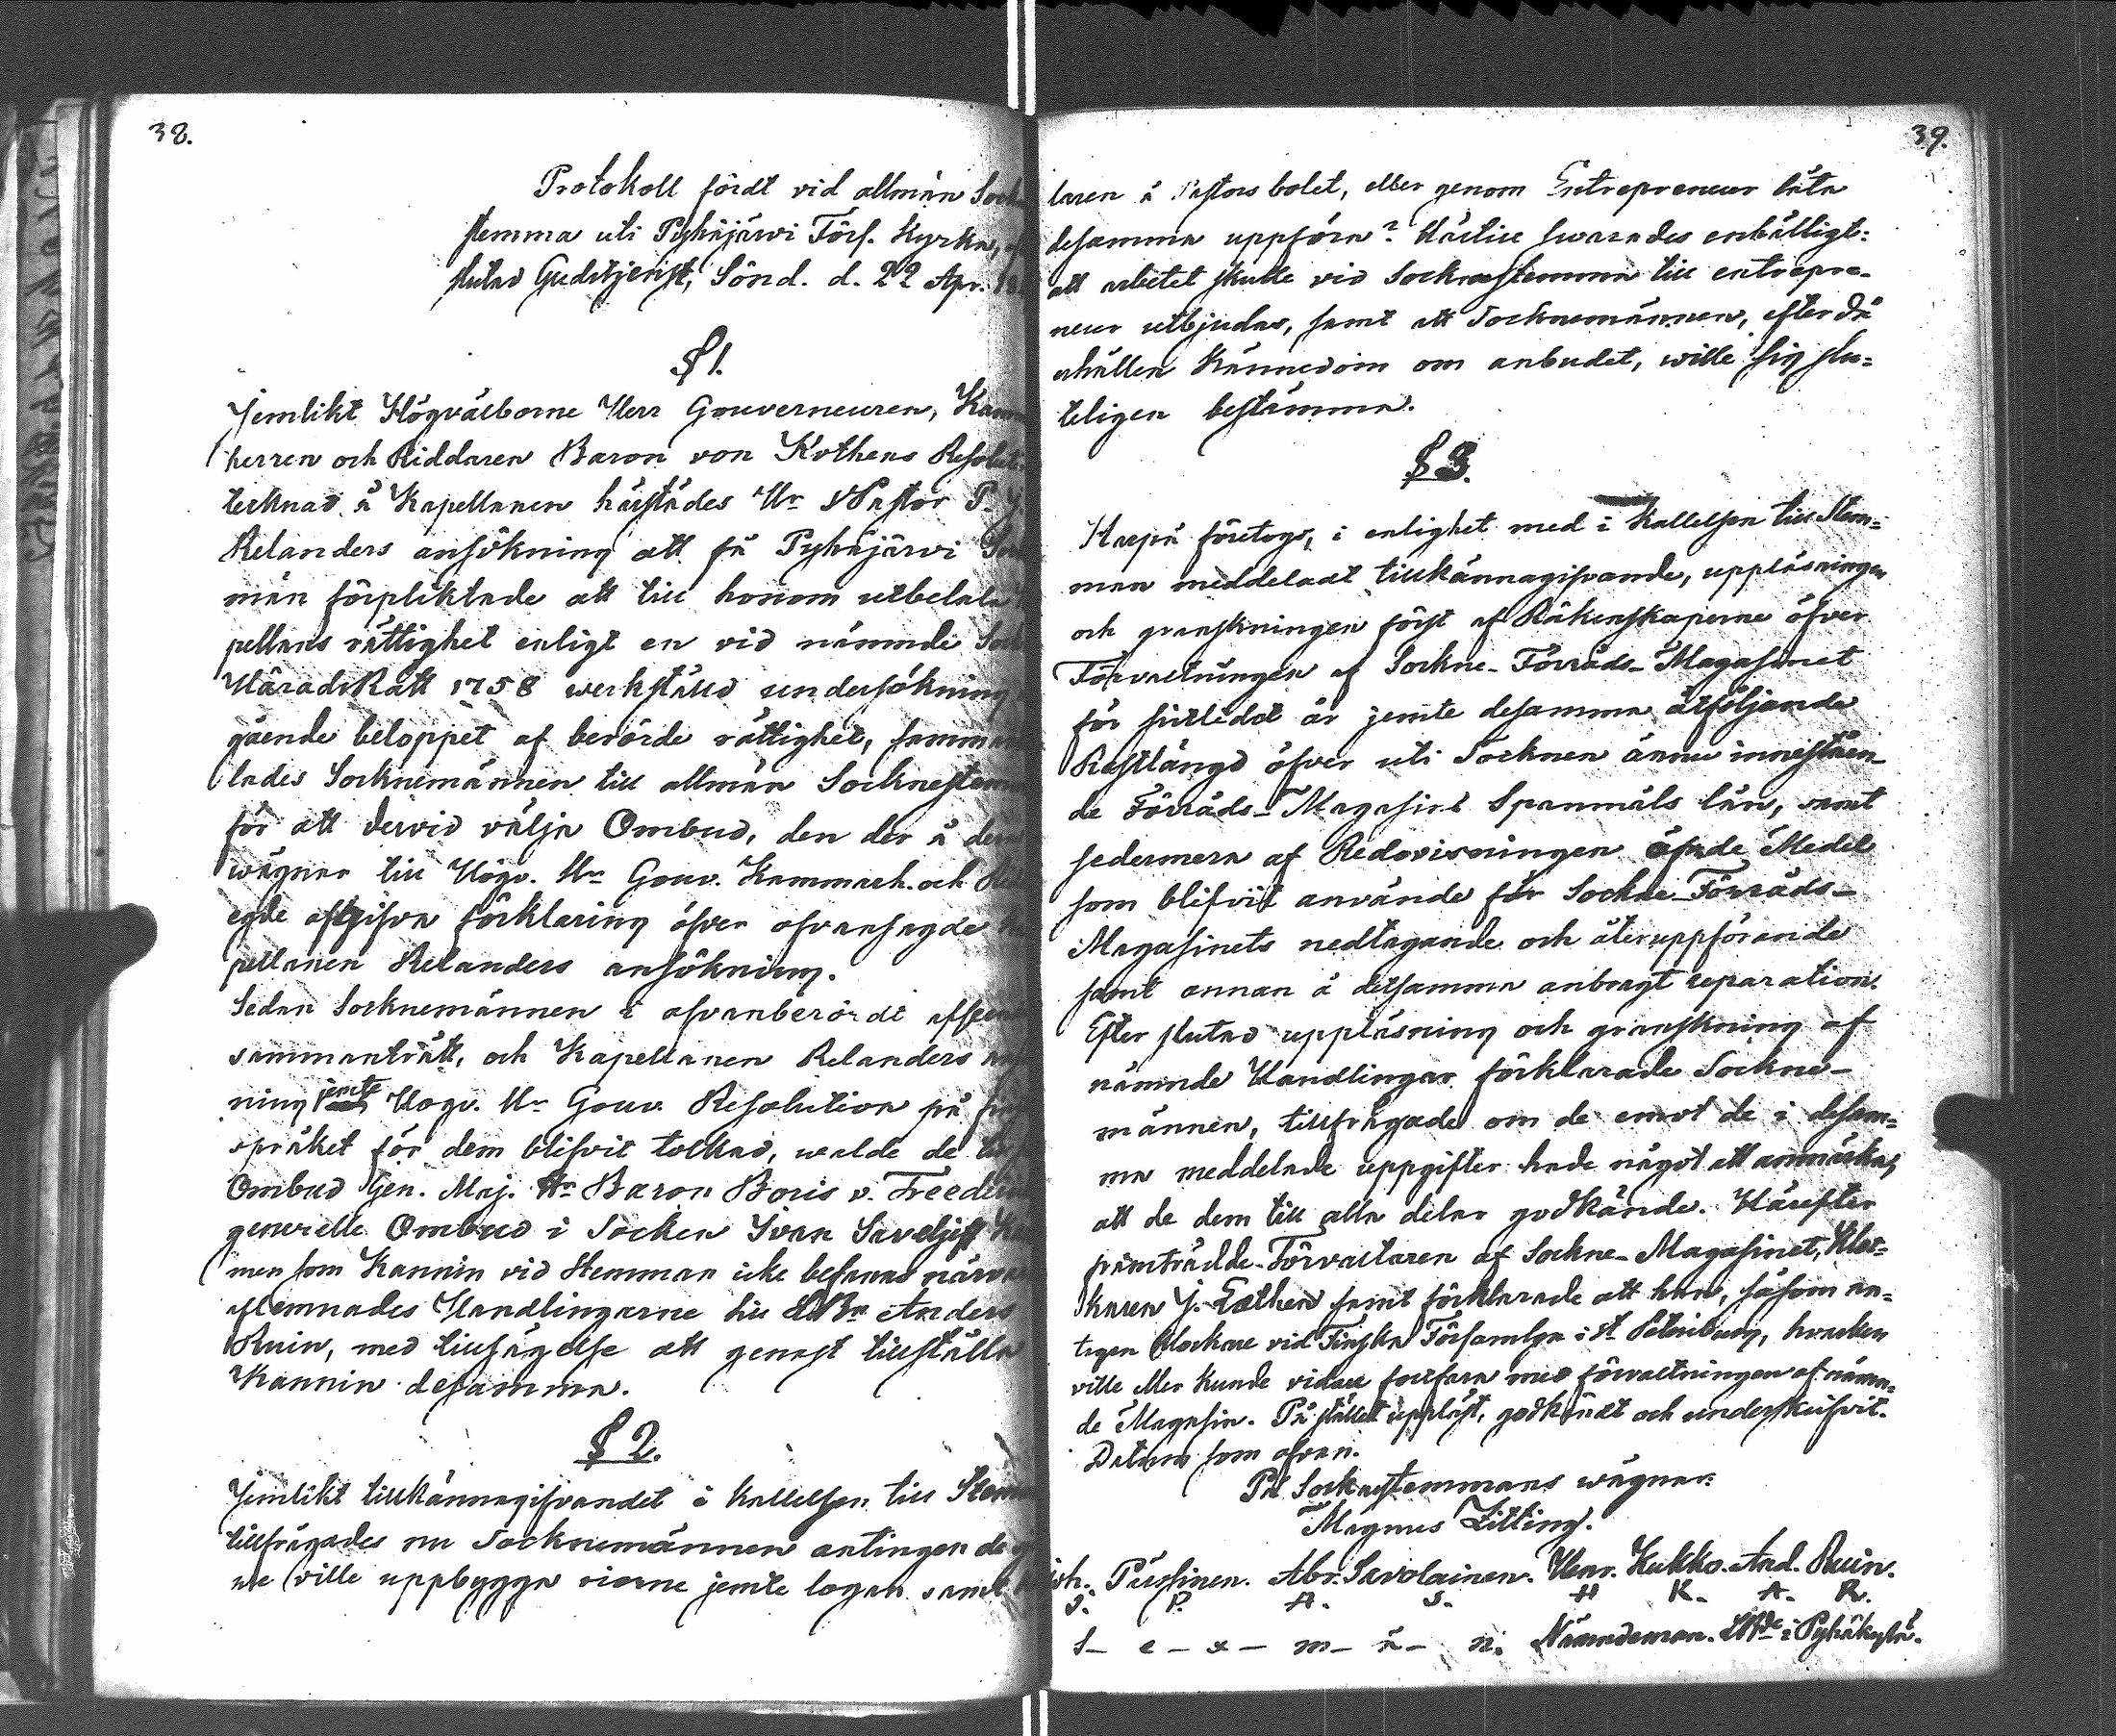 38.
Protokoll fördt vid allmän Sock
stemma uti Pyhäjärvi Förs. Kyrka,
slutad Gudstjenst, Sönd. d. 22 Apr. 18
§ 1.
Jemlikt Högvälborne Herr Gouverneuren, Kam
herren och Riddaren Baron von Kothens Resolut
tecknad å Kapellanen härstädes Hr VPastor P. J.
Relanders ansökning att få Pyhäjärvi Sock
män förpliktade att till honom utbetala
pellans rättighet enligt en vid nämnde Sock
HäradsRätt 1758 werkställd undersökning
gående beloppet af berörde rättighet, samman
lades Socknemännen till allmän Socknestemm
för att dervid välja Ombud, den der å deras
wägnar till Högv. Hr Gouv. Kammarh. och Rid
egde afgifva förklaring öfver ofvansagde Ka
pellanen Relanders ansökning.
Sedan Socknemännen i ofvanberördt afseende
sammanträtt, och Kapellanen Relanders ansök
ning jemte Högv. Hr Gouv. Resolution på finska
språket för dem blifvit tolkad, walde de till
Ombud Gen. Maj. Hr Baron Boris v. Freederi
generelle Ombud i Socken Ivan Saveljeff Kan
men som Kannin vid Stemman icke befanns närva
aflemnades Handlingarne till Anders
Ruin, med tillsägelse att genast tillställa
Kannin desamma.
§ 2.
Jemlikt tillkännagifvandet i kallelsen till Stem
tillfrågades nu Socknemännen antingen de
ne ville uppbygga riorne jemte logan samt

39.
laren å Pastorsbolet, eller genom Entrepreneur låta
desamma uppföra? Härtill swarades enhälligt:
att arbetet skulle vid Socknestemma till entrepre-
neur utbjudas, samt att Socknemännen, efter då
erhållen Kännedom om anbudet, wille sig slu-
teligen bestämma.
§ 3.
Härpå företogs, i enlighet med i Kallelsen till Stem-
man meddeladt tillkännagifvande, uppläsningen
och granskningen först af Räkenskaperne öfver
Förvaltningen af Sockne-Förråds-Magasinet
för sistlidet år jemte desamma åtföljande
Restlängd öfver uti Socknen ännu innestäen-
de Förråds-Magasins Spanmåls lån, samt
sedermera af Redovisningen öfver de Medel
som blifvit använde för Sockne-Förråds-
Magasinets nedtagande och återuppförande
samt annan å detsamma anbragt reparation.
Efter slutad uppläsning och granskning af
nämnde Handlingar förklarade Sockne-
männen, tillfrågade om de emot de i desam-
ma meddelade uppgifter hade något att anmärka,
att de dem till alla delar godkände. Härefter
framträdde Förvaltaren af Sockne-Magasinet, Kloc-
karen J. Læthen samt förklarade att han, såsom an-
tagen Klockare vid Finska Församlgn i St Petersburg, hvarken
ville eller kunde vidare fortfara med förvaltningen af nämn-
de Magasin. På stället uppläst, godkändt och underskrifvit.
Datum som ofvan.
På Socknestemmans wägnar:
Magnus Zitting.
Püssinen. Abr. Savolainen. Henr. Kukko. And. Ruin.
S. P. A. S. H K. A. R.
S - e - x - m - ä - n. Nämndeman. i Pyhäkylä.